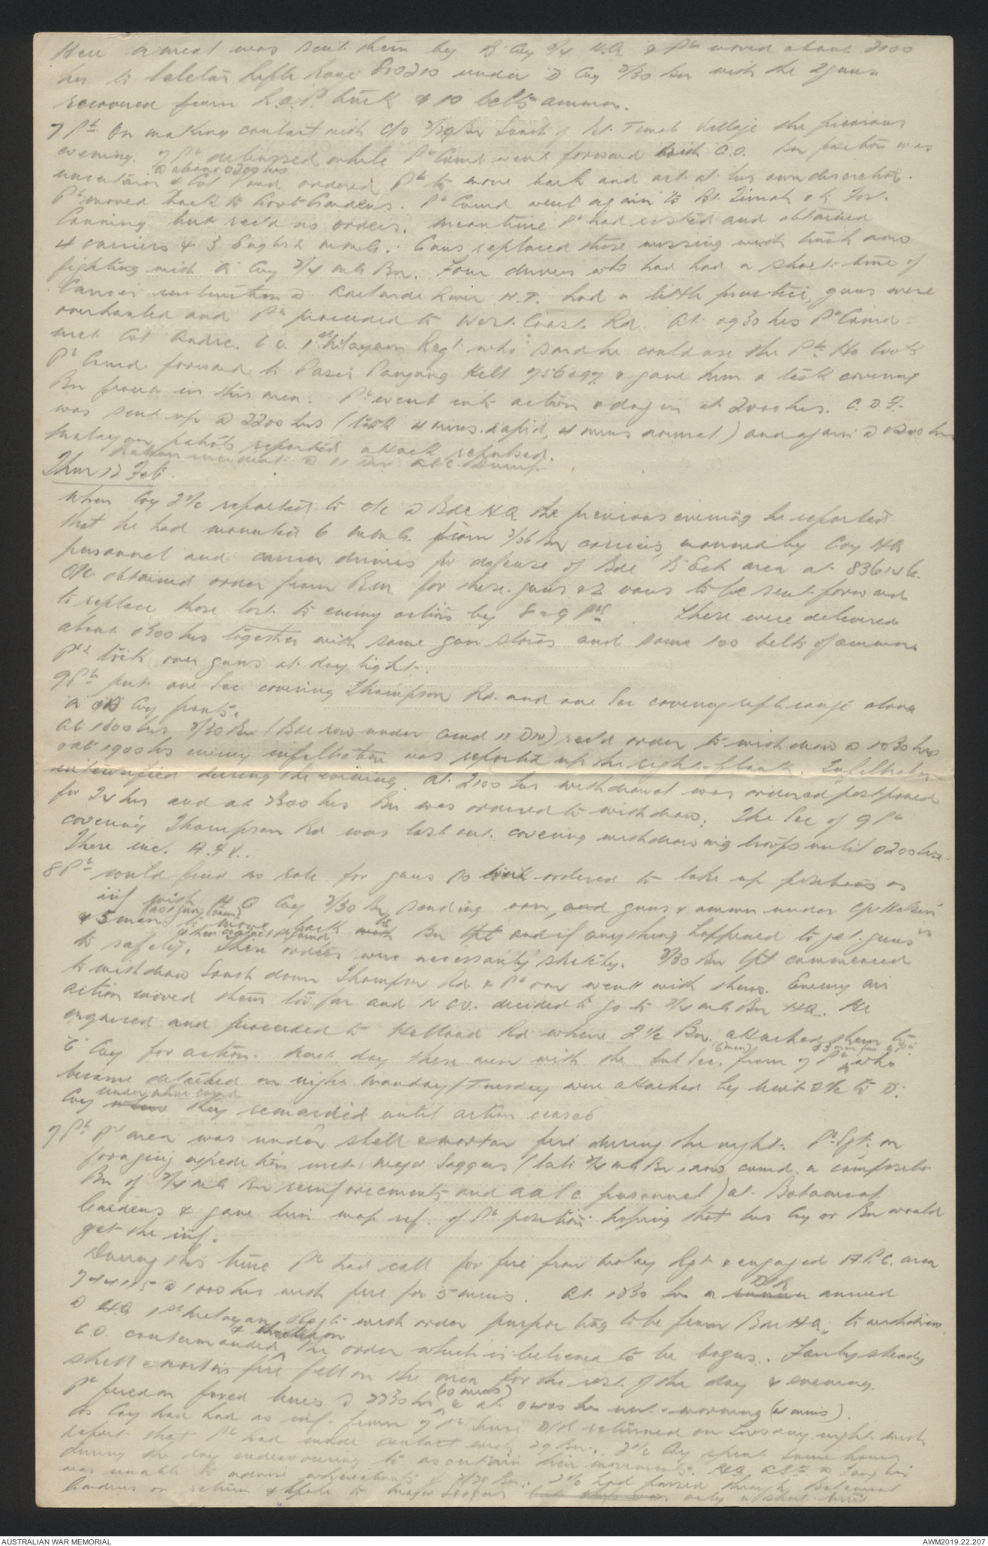 Here a meal was sent them by B Coy 2/4 H.Q. & Pl moved about 2000
hrs to Seletar Rifle Range 810210 under D Coy 2/30 Bn with the 2 guns
recovered from truck & 10 belts ammn.
7 Pl. On making contact with C/O 2/29 Bn South of Bt. Timah Village the previous
evening. 7 Pl debussed while Pl Comd went forward with C.O. Bn position was
uncertain & Col Pond ordered Pl to move back and act at his own discretion.
@ about 0200 hrs
Pl moved back to Govt Gardens. Pl Comd went again to Bt. Timah & Fort
Canning but recd no orders. Meantime Pl had rested and obtained
4 carriers & 3 English M.M.G. Guns replaced those missing with truck and
fighting with D Coy 2/4 M.G. Bn. Four drivers who had had a short time of
Carrier instruction @ Adelaide River N.T. had a little practice, guns were
overhauled and Pl proceeded to West Coast Rd. At 0930 hrs Pl Comd
met Col Andre. C.O. 1st Malayan Regt who said he could use the Pl. He took
Pl Comd forward to Pasir Panjang Hill 756097 & gave him a task covering
Bn front in this area. Pl went into action & dug in at 2000 hrs. C.D.F.
was sent up @ 2200 hrs (task 4 mins rapid, 4 mins normal) and again @ 0200 hrs
Malayan patrols reported attack repulsed.
Thur 12 Feb.
When Coy 2 i/c reported to O/C @ Bde HQ the previous evening he reported
that he had mounted 6 M.M.G. from 2/26 Bn carriers, manned by Coy HQ
personnel and carrier drivers for defence of Bde B Ech area at 836146.
O/C obtained order from Bdr. for these guns & 2 vans to be sent forward
to replace those lost to enemy action by 8 & 9 Pls. These were delivered
about 0300 hrs together with some gun stores and some 100 belts of ammn.
Pls took over guns at day light.
9 Pl put one Sec covering Thompson Rd. and one Sec covering rifle range along
Coy front.
At 1800 hrs 2/30 Bn (Bde now under comd 11 Div) recd order to withdraw @ 1830 hrs
& at 1900 hrs enemy infiltration was reported up the right flank. Infiltration
intensified during the evening. At 2100 hrs withdrawal was ordered postponed
for 24 hrs and at 2300 hrs Bn was ordered to withdraw. The Sec of 9 Pl
covering Thompson Rd was last out. covering withdrawing troops until 0200 hrs.
There inc. A.I.F.
8 Pl could find no role for guns so were ordered to take up positions as
inf with C Coy 2/30 Bn sending van, and guns & ammn under Cpl
& 5 men to move back with Bn and if anything happened to get guns
to safety. Their orders were necessarily sketchy. 2/30 Bn commenced
to withdraw South down Thompson Rd & Pl van went with them. Enemy air
action moved them too far and N.C.O. decided to go to 2/4 MG Bn HQ. He
enquired and proceeded to Holland Rd where 2 i/c Bn. attached them to
C Coy for action. Next day these men with the Sub Sec. from 7 Pl who
became detached on night Monday/Tuesday were attached by Unit 2 i/c to D.
Coy under whose comd they remained until action ceased
7 Pl Pl area was under shell & mortar fire during the night. Pl Sgt. on
foraging expedition met Major Saggers (late 2/4 MG Bn & now comd. a composite
Bn of 2/4 MG Bn reinforcements and A.A.S.C. personnel) at Botanical
Gardens & gave him map ref. of Pl position hoping that his Coy or Bn would
get the inf.
During this time Pl had call for fire from Malay Rgt & engaged A.P.C. area
744115 @ 1000 hrs with fire for 5 mins. At 1830 hrs a D.R. arrived
@ HQ 1st Malayan Regt with order purporting to be from Bde HQ, to withdraw.
C.O. countermanded the order which is believed to be bogus. Fairly steady
shell & mortar fire fell on the area for the rest of the day & evening.
Pl fired on fixed lines @ 2230 hrs (10 mins) & at 0400 hrs next morning (4 mins).
As Coy had had no inf. from 7 Pl since D/R returned on Tuesday night with
report that Pl had made contact with 29 Bn., 2 i/c Coy spent some hours
during the day endeavouring to ascertain their movements.
was unable to advise 2/29 Bn. 2 i/c had passed through Botanical
Gardens on return & spoke to Major Saggers only a short time
AUSTRALIAN WAR MEMORIAL
AWM2019.22.207